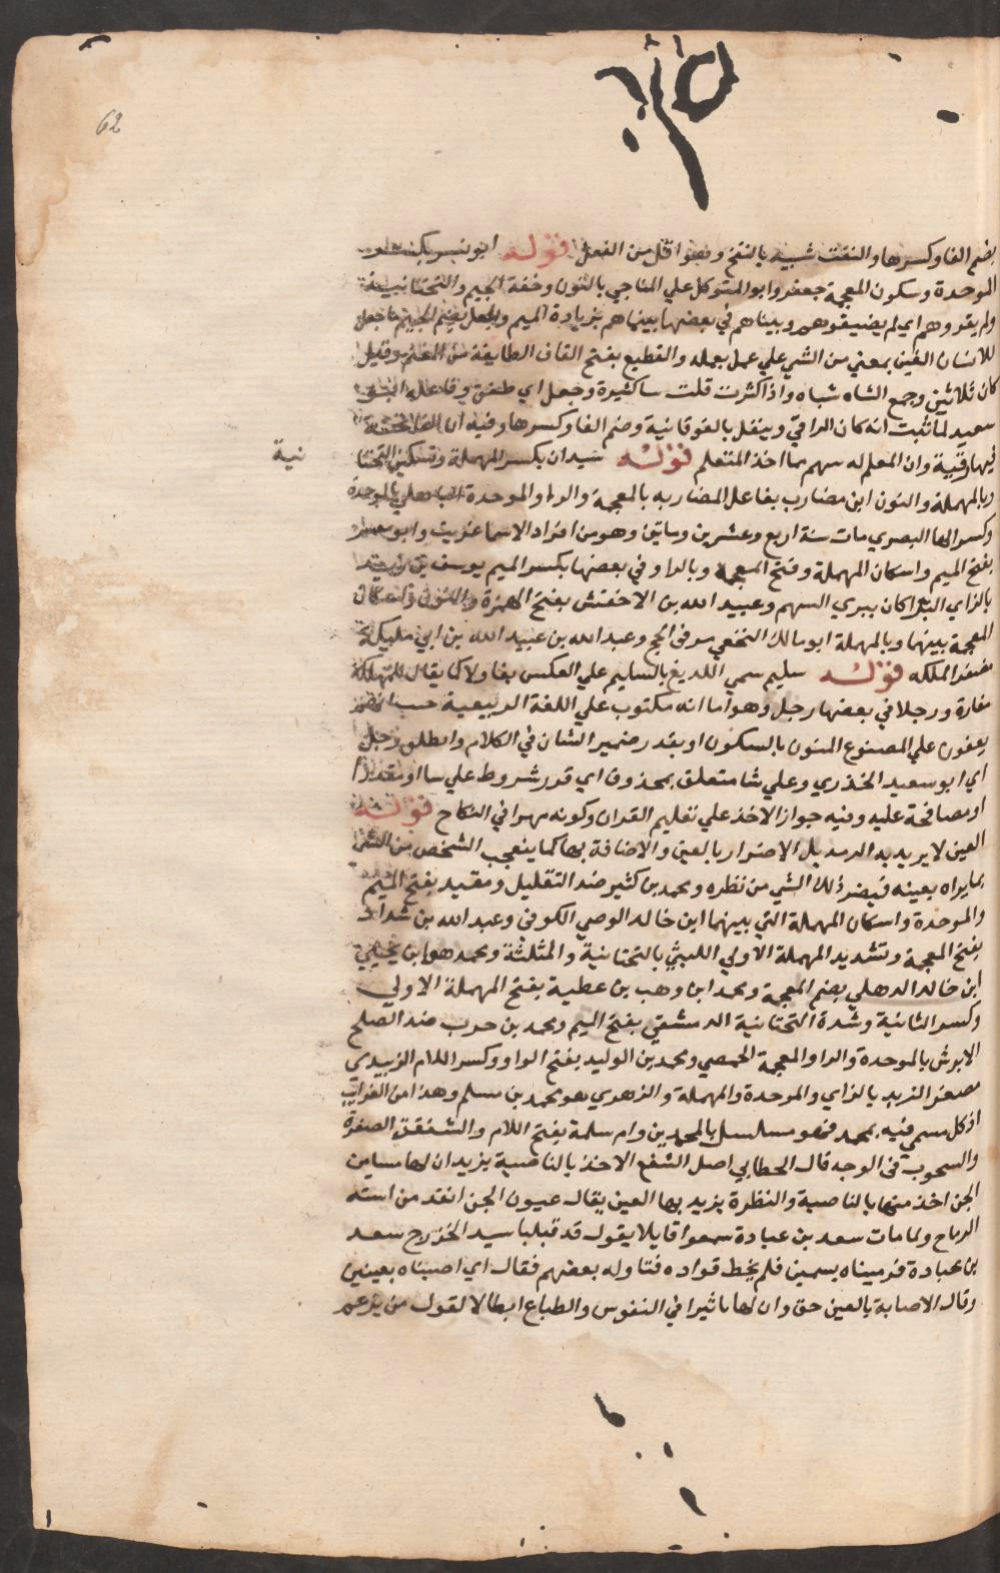 62
بضم الفا وكسرها والنفث شبيه بالنفخ وهو اقل من التفل قوله ابو بشر بكسر
الموحدة وسكون المعجمة جعفر وابو المتوكل علي الناجي بالنون وخفة الجيم والتحتانية
ولم يقروهم اي لم يضيفوهم وبيناهم في بعضها بينما هم بزيادة الميم والجعل بضم الجيم ما جعل
للانسان من الشي علي عمل يعمله والقطيع بفتح القاف الطايفة من الغنم وقيل
كان ثلاثين وجمع الشاه شياه واذا كثرت قلت شا كثيرة وجعل اي طفق وفاعله ابو
سعيد لما ثبت انه كان الراقي ويتفل بالفوقانية وضم الفا وكسرها وفيه ان الفاتحة
فيها رقية وان المعلم له سهم مما اخذ المتعلم قوله سيدان بكسر المهملة وتسكين التحتا
نية
وبالمهملة والنون ابن مضارب بفاعل المضاربه بالمعجمة والرا والموحدة الباهلي بالموحدة
وكسر الها البصري مات سنة اربع وعشرين وماتين وهو من افراد الاسما غريب وابو معشر
بفتح الميم واسكان المهملة وفتح المعجمة وبالرا وفي بعضها بكسر الميم يوسف بن يزيد
بالزاي البرا كان يبري السهم وعبيد الله بن الاخنش بفتح الهمزة والنون واسكان
المعجمة بينهما وبالمهملة ابو مالك النخعي مر في الحج وعبد الله بن عبيد الله بن ابي مليكة
مصغر الملكه قوله سليم سمي اللديغ بالسليم علي العكس تفاولا كما يقال للمهلكة
مفازة ورجلا في بعضها رجل وهو اما انه مكتوب علي اللغة الربيعية حيث انهم
يقفون علي المنون بالسكون او يقدر ضمير الشان في الكلام وانطلق رجل
اي ابو سعيد الخدري وعلي شا متعلق بمحذوف اي قرر شروط علي شا او مقدرا
او مصالحة عليه وفيه جواز الاخذ علي تعليم القران وكونه مهرا في النكاح قوله
العين لا يريد به الرمد بل الاضرار بالعين والاضافة بها كما يتعجب الشخص من الشي
بما يراه بعينه فيضر ذلك الشي من نظره ومحمد بن كثير ضد التقليل ومعبد بفتح الميم
والموحدة واسكان المهملة التي بينهما ابن خالد الوصي الكوفي وعبد الله بن شداد
بفتح المعجمة وتشديد المهملة الاولي الليثي بالتحتانية والمثلثة ومحمد هو ابن يحيي
ابن خالد الدهلي بضم المعجمة ومحمد ابن وهب بن عطية بفتح المهملة الاولي
وكسر الثانية وشدة التحتانية الدمشقي بفتح الميم ومحمد بن حرب ضد الصلح
الابرش بالموحدة والرا والمعجمة الحمصي ومحمد بن الوليد بفتح الواو وكسر اللام الزبيدي
مصغر الزبد بالزاي والموحدة والمهملة والزهري هو محمد بن مسلم وهذا من الغرايب
اذ كل مسمي فيه بمحمد فهو مسلسل بالمحمدين وام سلمة بفتح اللام الصفرة
والسحوب في الوجه قال الخطابي اصل السفع الاخذ بالناصية يريد ان لها مسا من
الجن اخذ منها بالناصية والنظرة يريد بها العين يقال عيون الجن انفذ من اسنه
الرماح ولما مات سعد بن عبادة سمعوا قايلا يقول قد قتلنا سيد الخزرج سعد
بن عبادة فرميناه بسهمين فلم يخط فواده فتاوله بعضهم فقال اي اصبناه بعينين
وقال الاصابة بالعين حق وان لها تاثيرا في النفوس والطباع ابطالا لقول من يزعم